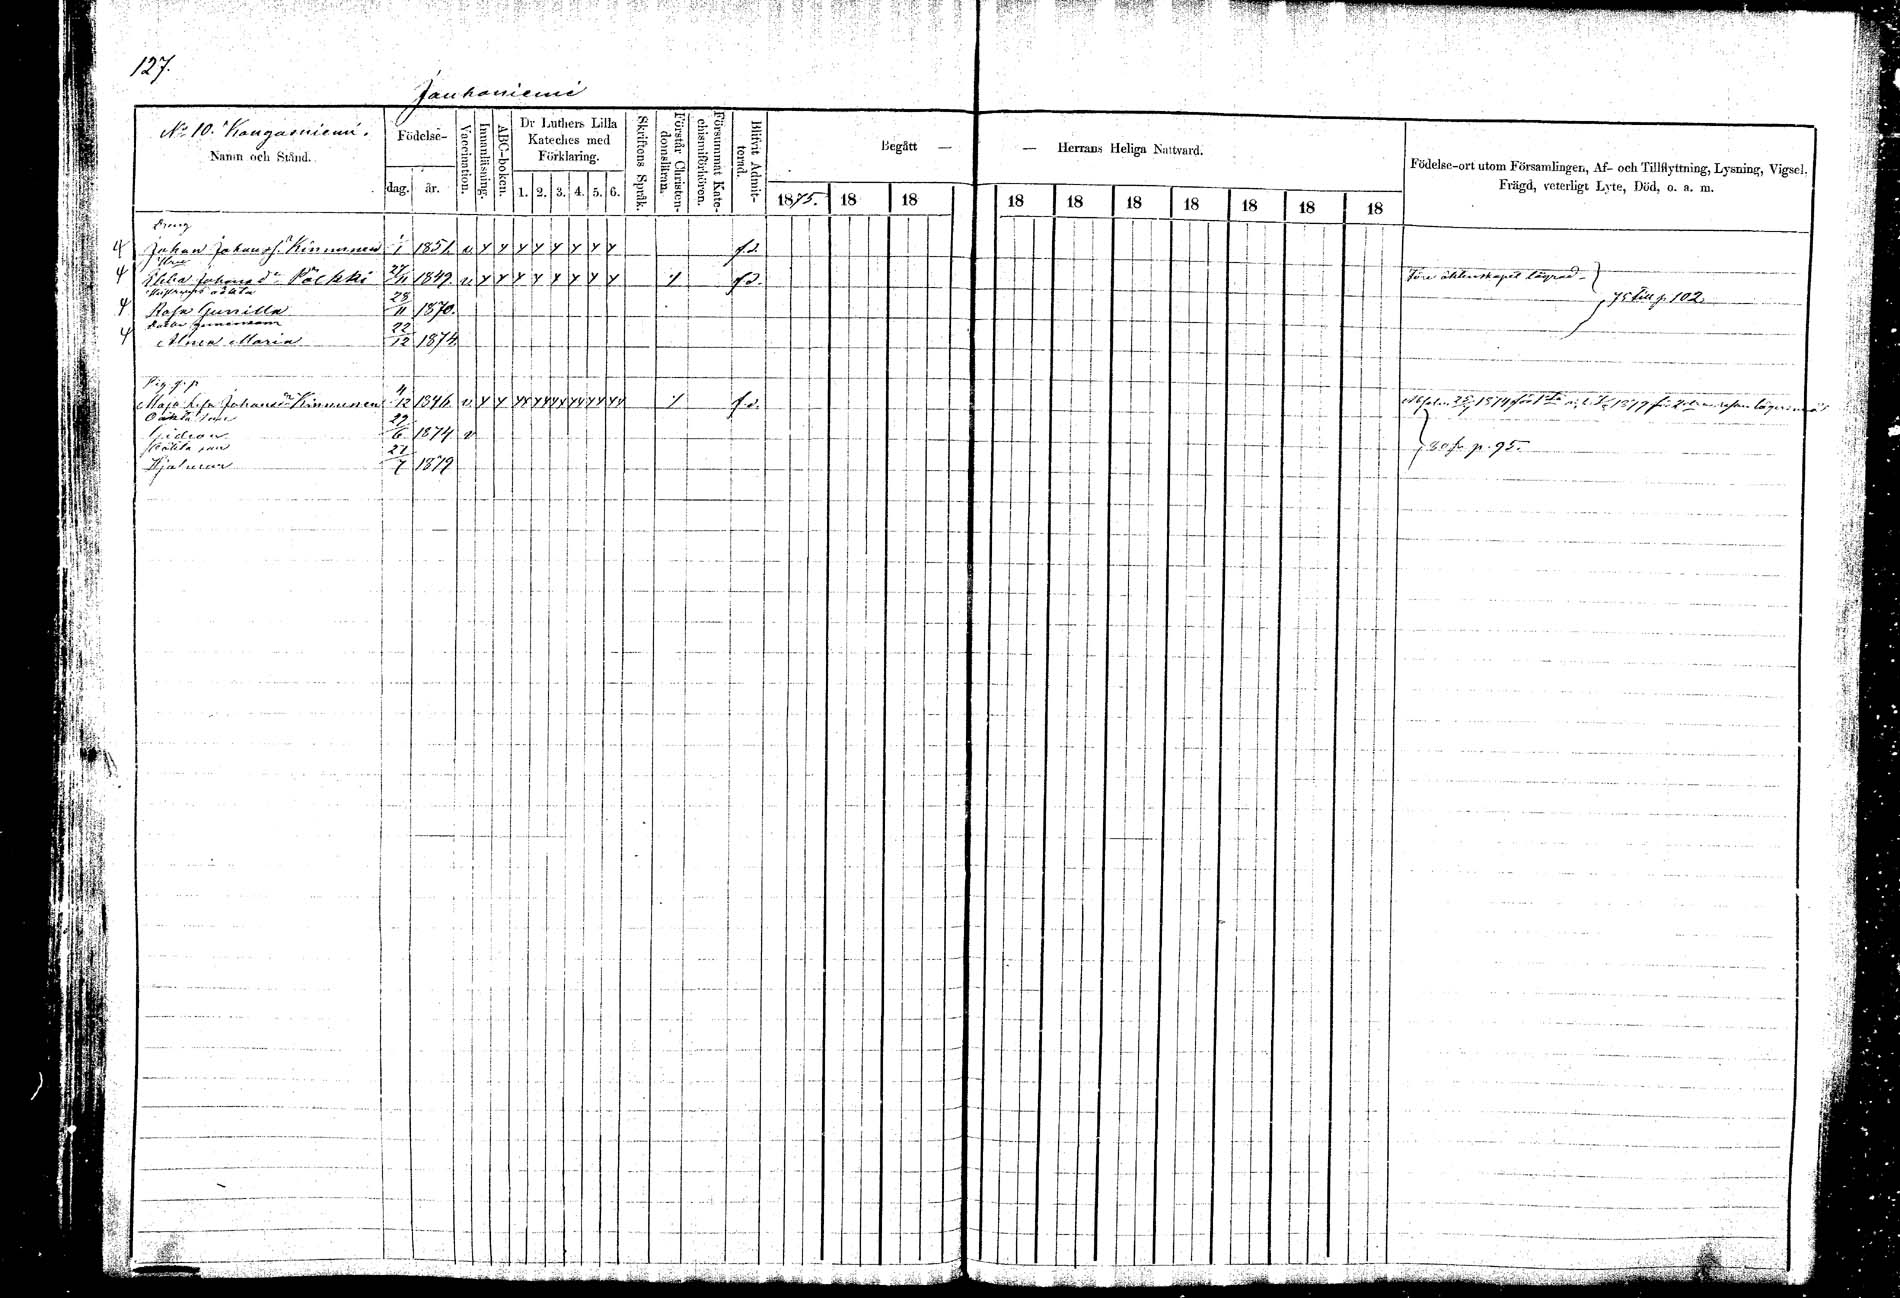 127.
Jauhoniemi
No 10. Kangasniemi.
Namn och Stånd.
Födelse-
dag. år.
Vaccination.
Innanläsning.
ABC-boken.
Dr Luthers Lilla
Kateches med
Förklaring.
1. 2. 3. 4. 5. 6.
Skriftens Språk.
Förstår Christen-
domsläran.
Försummat Kate-
chismiförhören.
Blifvit Admit-
terad.
Begått — — Herrans Heliga Nattvard.
1875. 18 18 18 18 18 18 18 18 18
Födelse-ort utom Församlingen, Af- och Tillflyttning, Lysning, Vigsel,
Frägd, veterligt Lyte, Död, o. a. m.
Dreng
Johan Johans s. Kinnunen 1/1 1851. v.
Ebba Johans dr 27/11 1849. v Före äktenskapet lägrad
75 till p. 102
Rosa Gunilla 28/11 1870.
Alma Maria 22/12 1874.
Maja Lisa Johans dr Kinnunen 4/12 1846. v
Oäkta son
Gideon 29/6 1874 v
Oäkta son 80 fr p. 95.
Hjalmar 21/7 1879